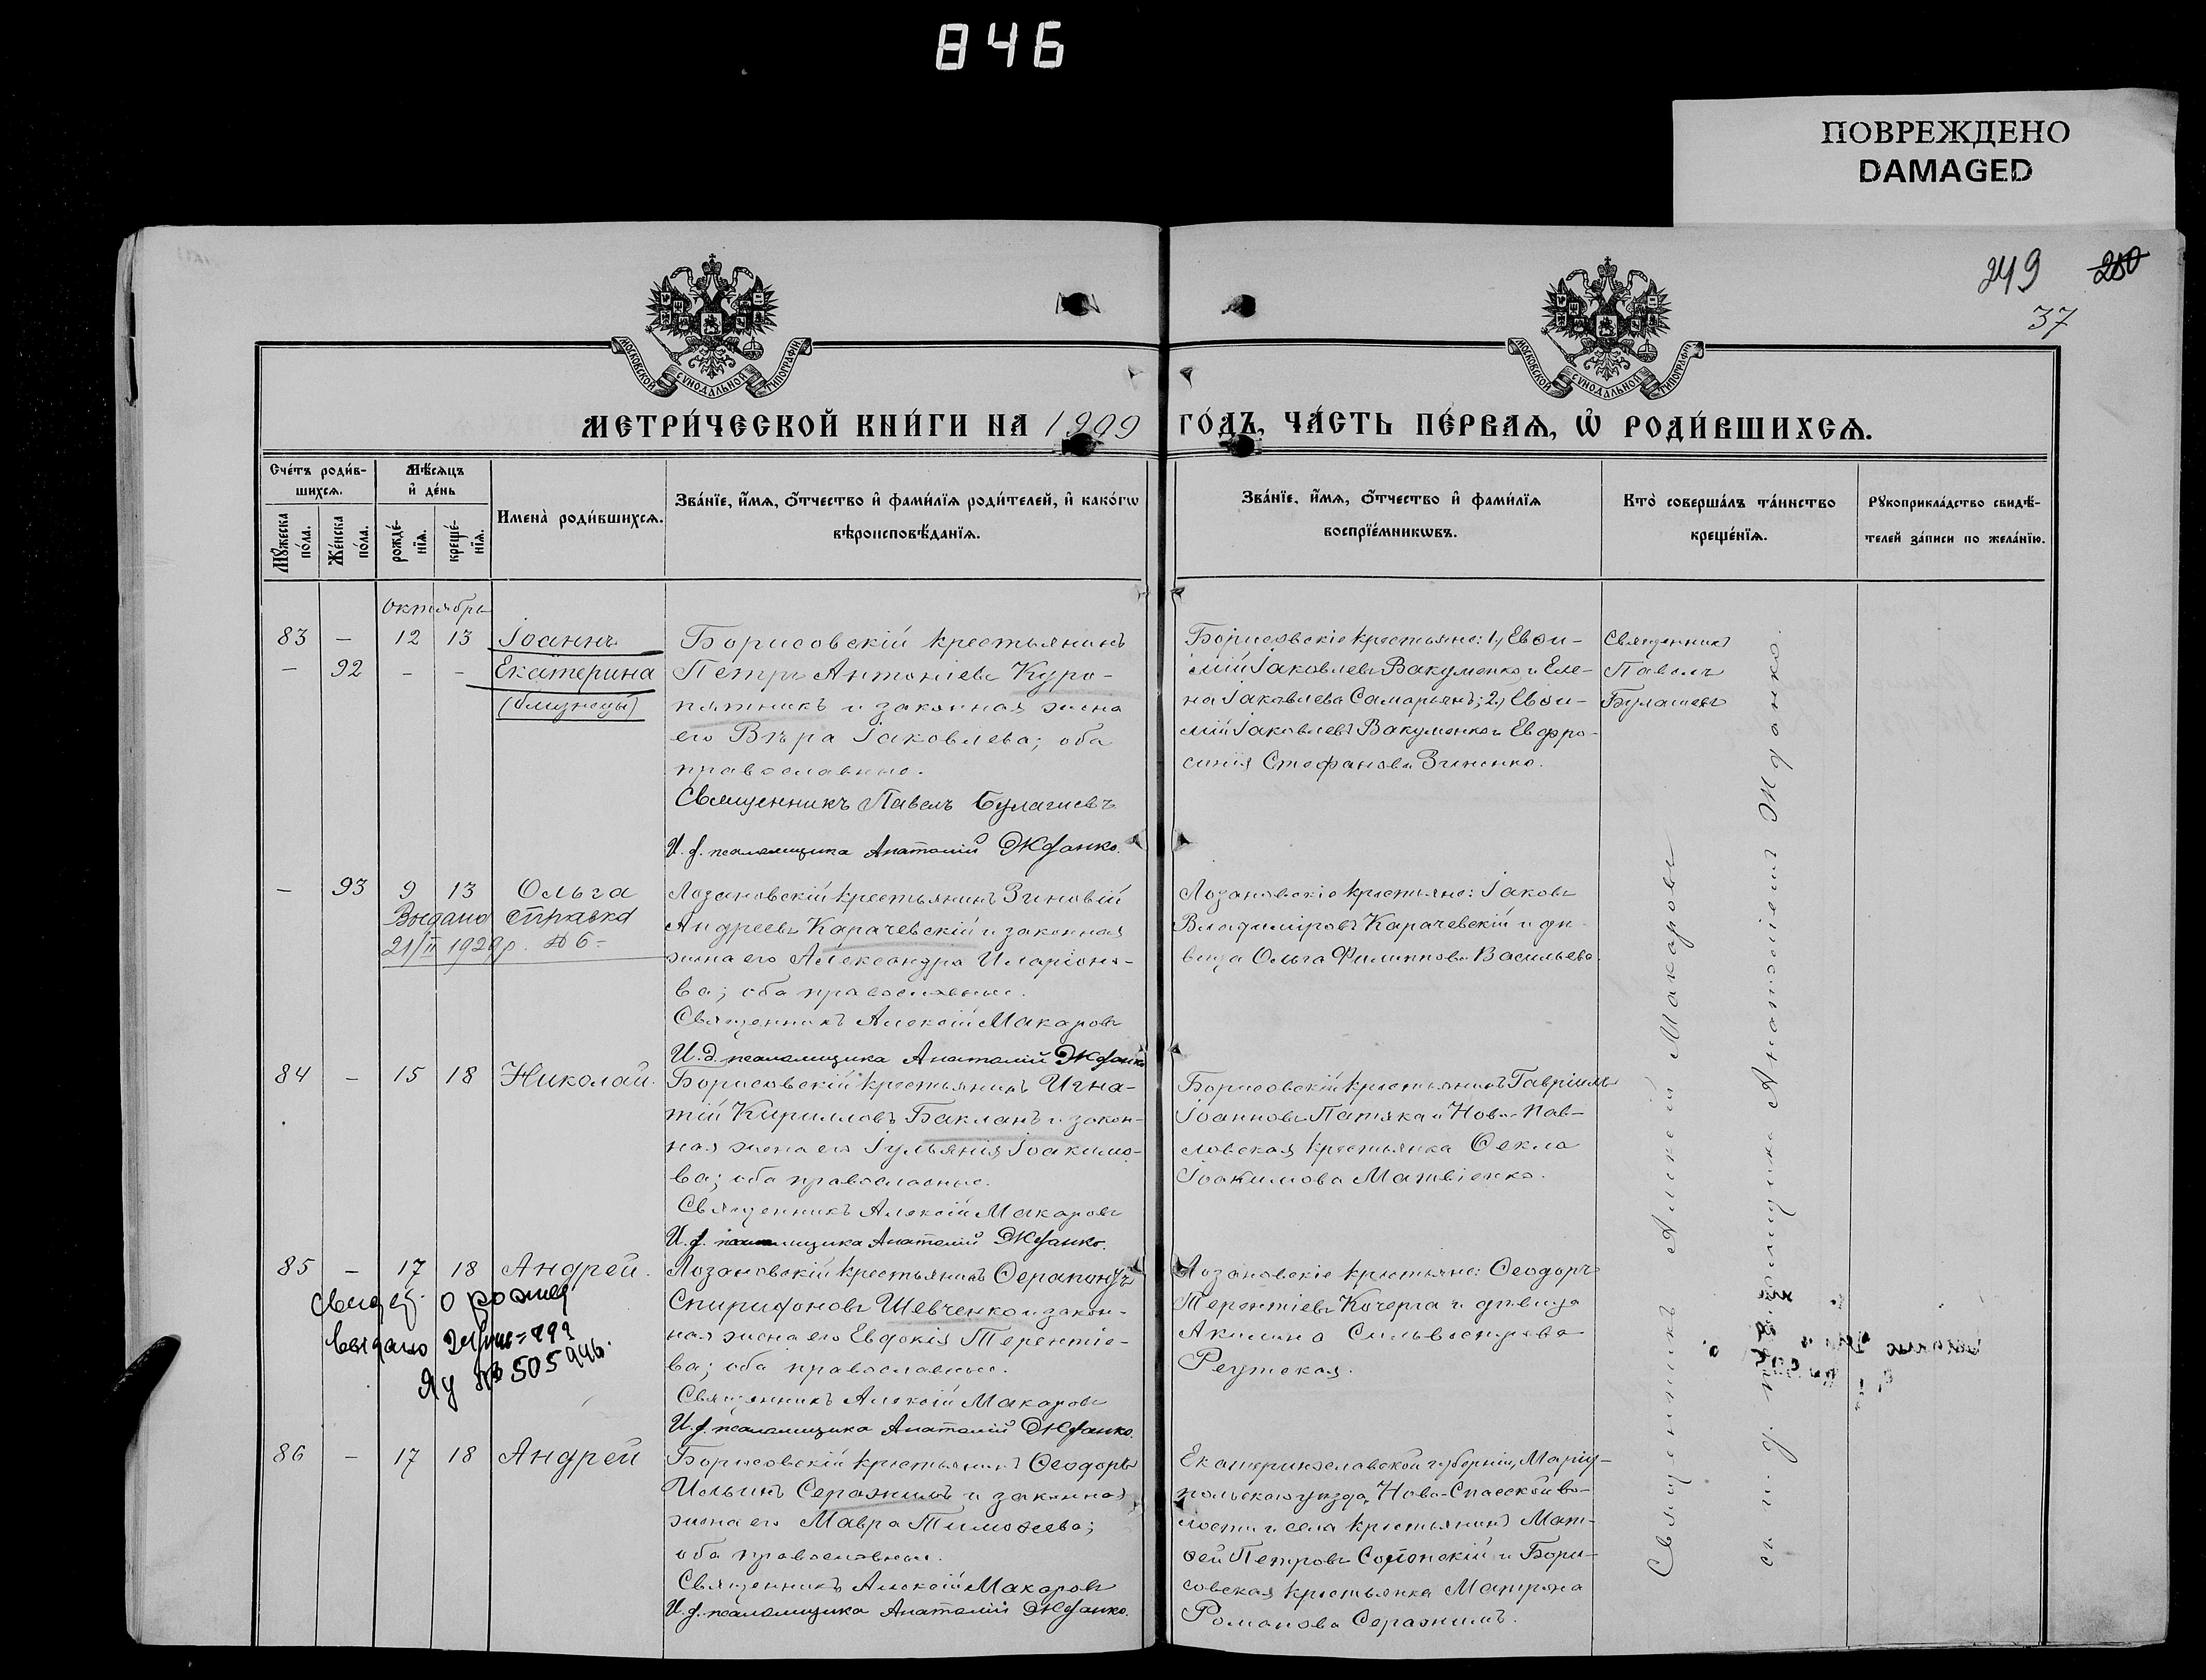 846
ПОВРЕЖДЕНО
DAMAGED
249 250
37
МОСКОВСКОЙ СѴНОДАЛЬНОЙ ТИПОГРАФІИ
МОСКОВСКОЙ СѴНОДАЛЬНОЙ ТИПОГРАФІИ
МЕТРИ́ЧЕСКОЙ КНИ́ГИ НА 1909 ГО́ДЪ, ЧА́СТЬ ПЕ́РВАѦ, Ѡ҆ РОДИ́ВШИХСѦ.
Сче́тъ роди́в-
шихсѧ.
Мꙋ́жеска по́ла.
Же́нска по́ла.
Мѣ́сѧцъ
и҆ де́нь
рожде́-
нїѧ.
креще́-
нїѧ.
Имена̀ роди́вшихсѧ.
Зва́нїе, и҆́мѧ, ѻ҆́тчество и҆ фами́лїѧ роди́телей, и҆ како́гѡ
вѣроисповѣ́данїѧ.
Зва́нїе, и҆́мѧ, ѻ҆́тчество и҆ фами́лїѧ
воспрїе́мникѡвъ.
Кто̀ соверша́лъ та́инство
креще́нїѧ.
Рꙋкоприкла́дство свидѣ́-
телей за́писи по жела́нїю.
Октябрь
83 – 12 13 Іоаннъ
– 92 – – Екатерина
(близнецы)
Борисовскій крестьянинъ
Петръ Антоніевъ Куро-
пятникъ и законная жена
его Вѣра Іаковлева; оба
православные.
Священникъ Павелъ Булашевъ
И. д. псаломщика Анатолій Жданко.
Борисовскіе крестьяне: 1, Евѳи-
мій Іаковлевъ Вакуменко и Еле-
на Іаковлева Самарьянъ; 2, Евѳи-
мій Іаковлевъ Вакуменко и Евфро-
синія Стефанова Зиненко.
Священникъ
Павелъ
Булашевъ
– 93 9 13 Ольга
Выдано справка
21/II 1929 р. № 6-
Лозановскій крестьянинъ Зиновій
Андреевъ Карачевскій и законная
жена его Александра Иларіоно-
ва; оба православные.
Священникъ Алексій Макаровъ
И. д. псаломщика Анатолій Жданко
Лозановскіе крестьяне: Іаковъ
Владиміровъ Карачевскій и дѣ-
вица Ольга Филиппова Васильева.
84 – 15 18 Николай.
Борисовскій крестьянинъ Игна-
тій Кирилловъ Бакланъ и закон-
ная жена его Іульянія Іоакимо-
ва; оба православные.
Священникъ Алексій Макаровъ
И. д. псаломщика Анатолій Жданко.
Борисовскій крестьянинъ Гавріилъ
Іоанновъ Патяка и Ново-Пав-
ловская крестьянка Ѳекла
Іоакимова Матвіенко.
85 – 17 18 Андрей.
Свидет. о рожд
выдано
№ 505946.
Лозановскій крестьянинъ Ѳерапонтъ
Спиридоновъ Шевченко и закон-
ная жена его Евдокія Терентіе-
ва; оба православные.
Священникъ Алексій Макаровъ
И. д. псаломщика Анатолій Жданко.
Лозановскіе крестьяне: Ѳеодоръ
Терентіевъ Кочерга и дѣвица
Акилина Сильвестрова
Реутская.
86 – 17 18 Андрей
Борисовскій крестьянинъ Ѳеодоръ
Ильинъ Серажимъ и законная
жена его Мавра Тимоѳеева;
оба православные.
Священникъ Алексій Макаровъ
И. д. псаломщика Анатолій Жданко.
Екатеринославской губерніи, Маріу-
польскаго уѣзда, Ново-Спасской во-
лости и села крестьянинъ Мат-
ѳей Петровъ и Бори-
совская крестьянка Матрона
Романова Серажимъ.
Священникъ Алексій Макаровъ
съ и. д. псаломщика Анатоліемъ Жданко.